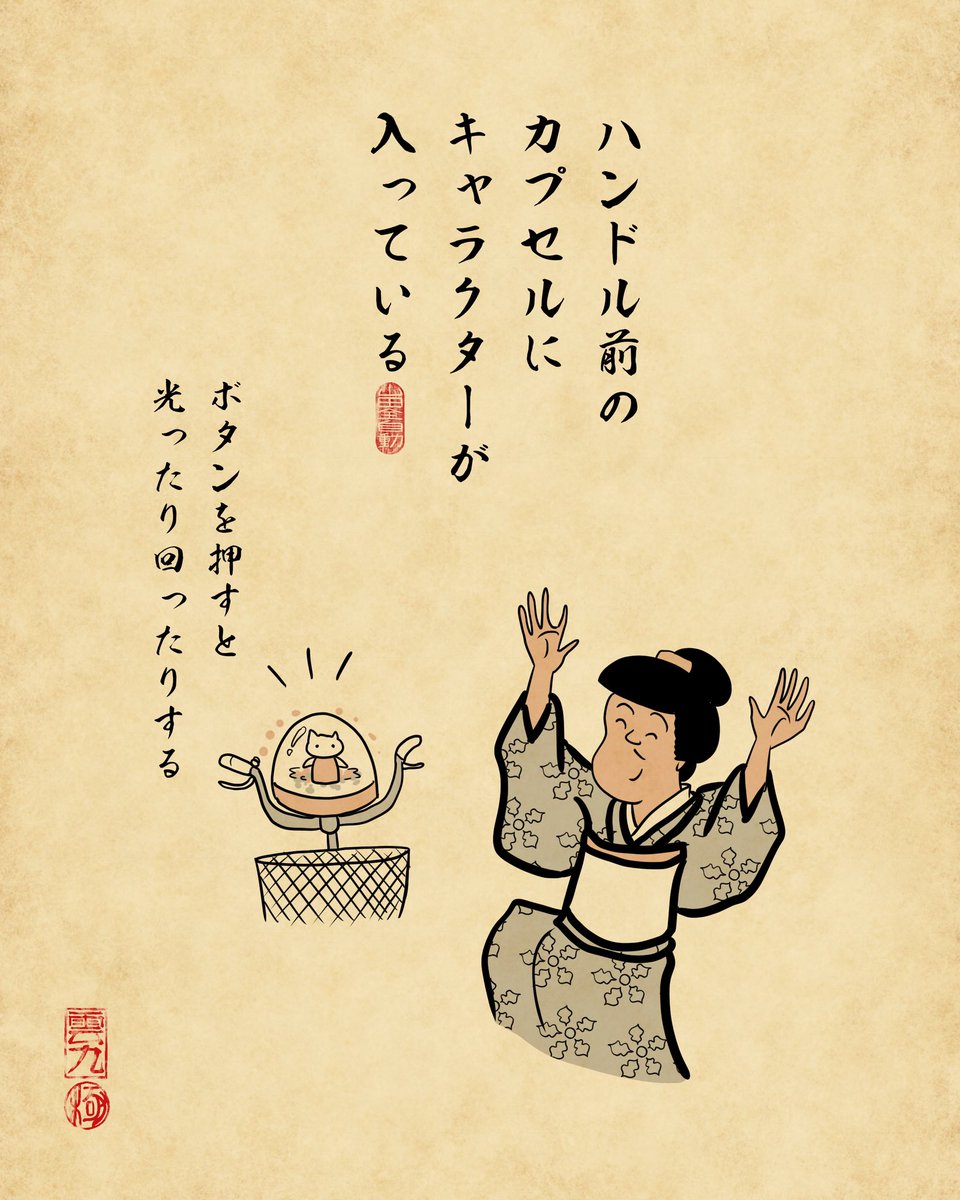 ハンドル前の
カプセルに
キャラクターが
入っている
ボタンを押すと
光ったり回ったりする